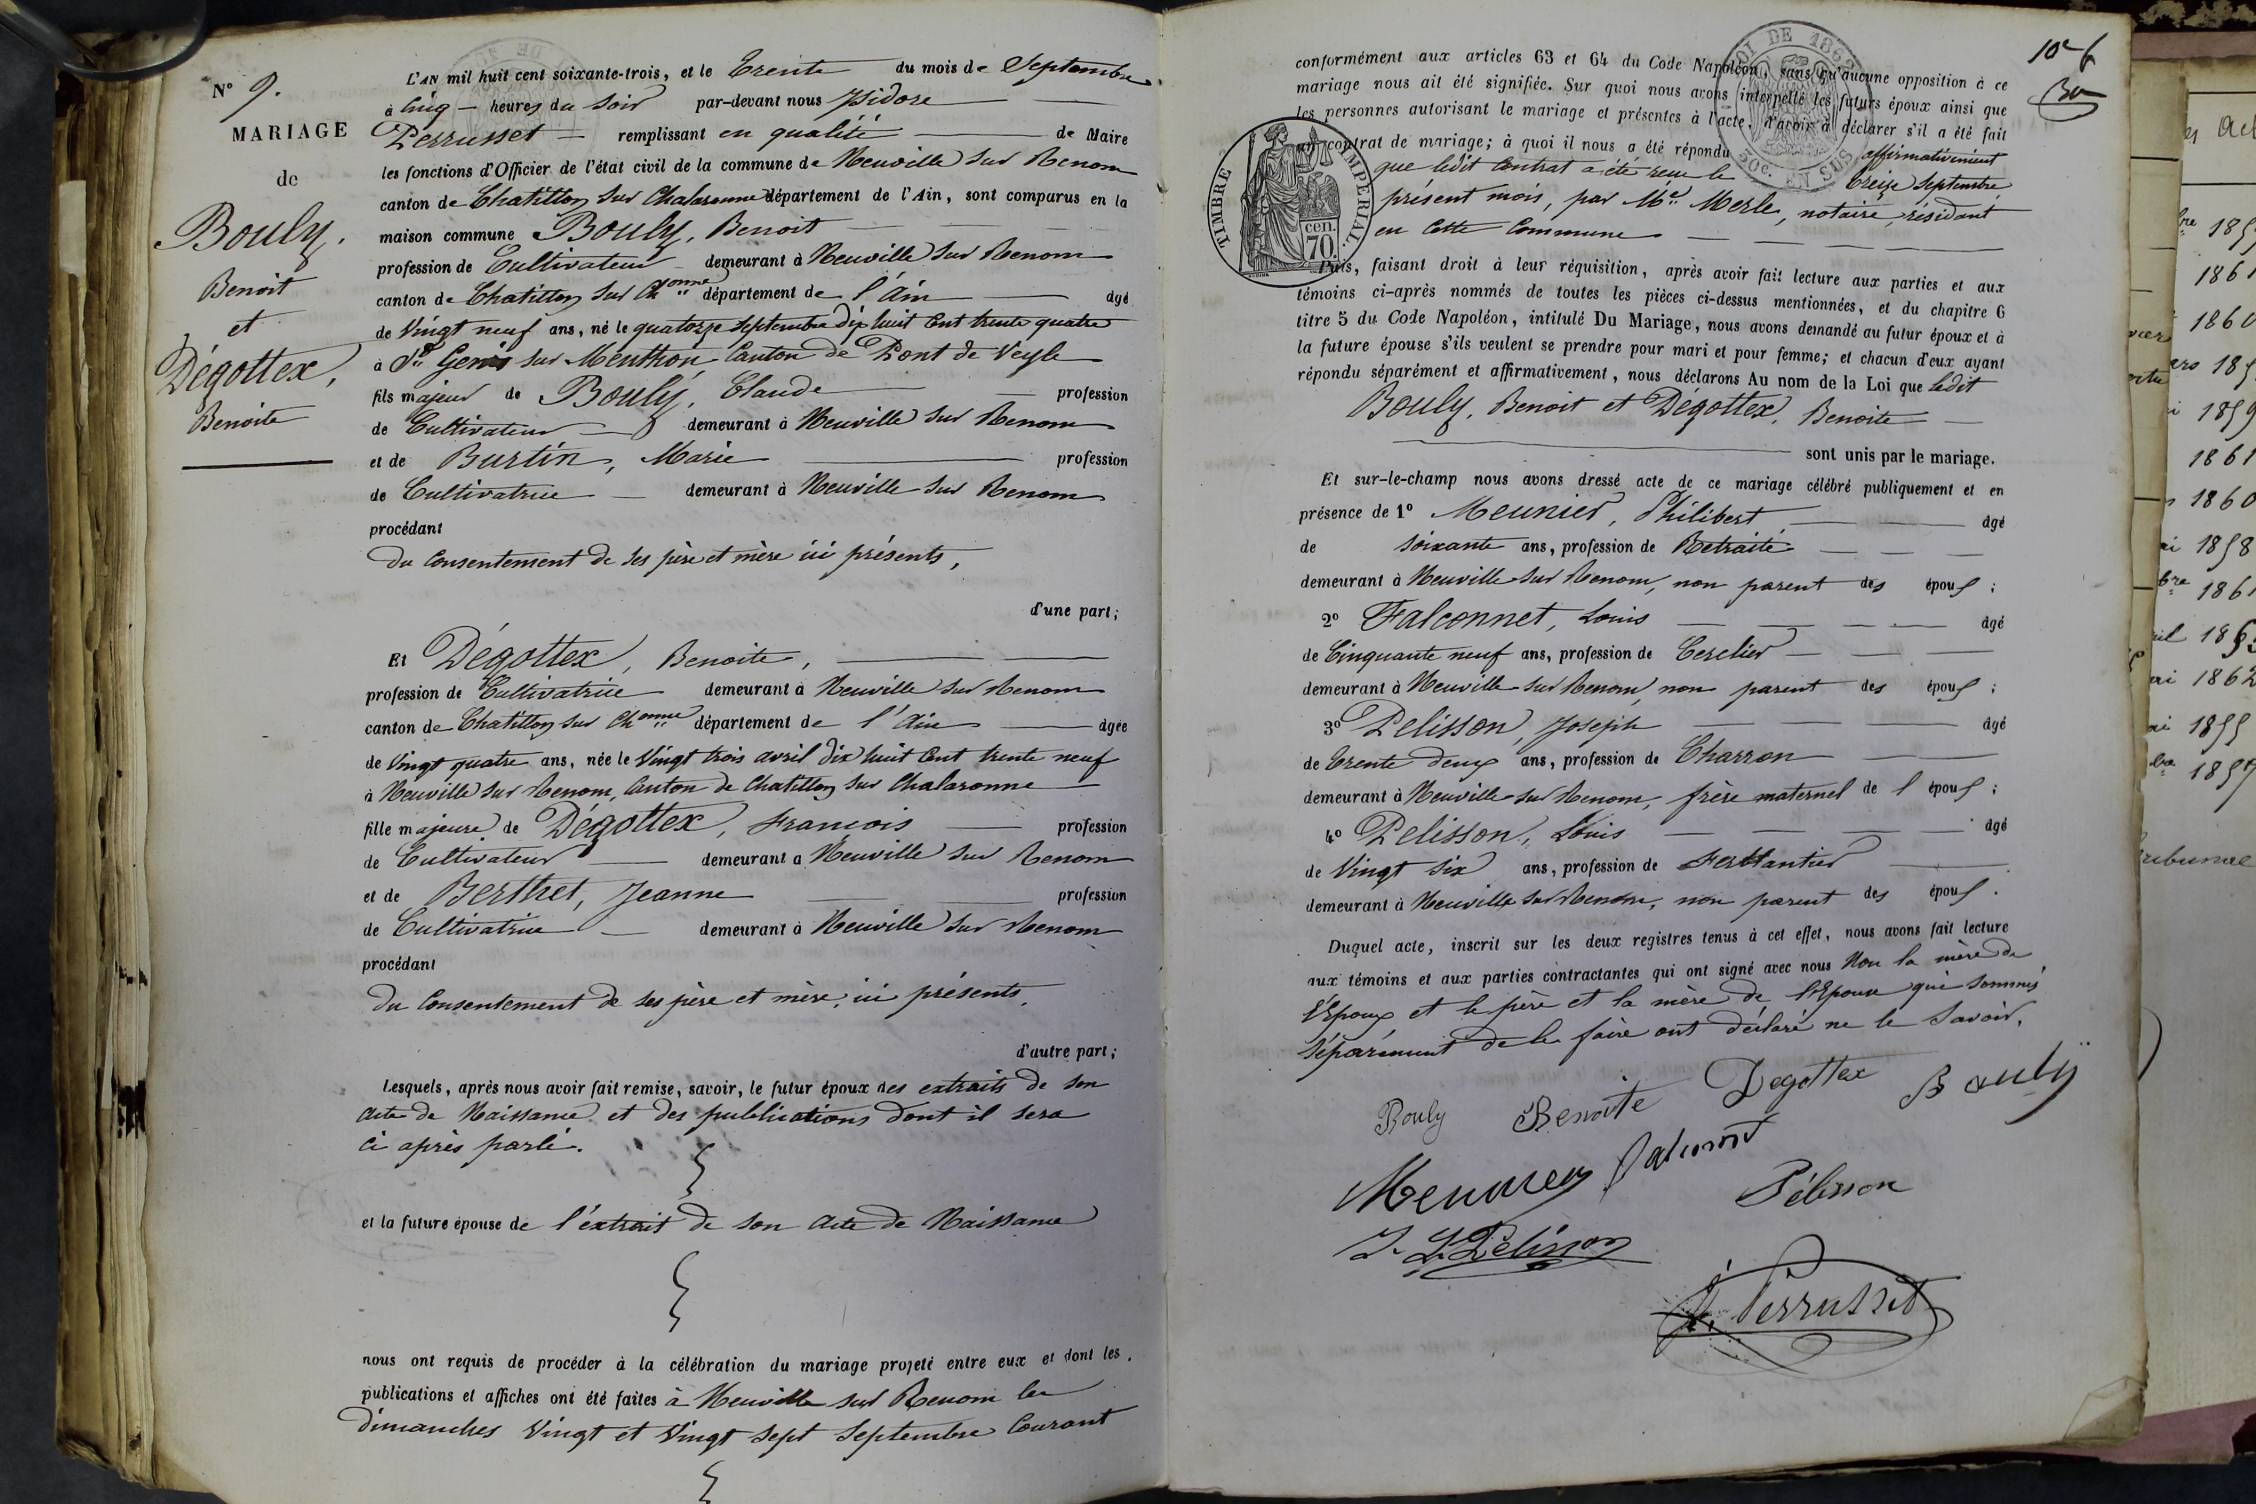 N° 9.
MARIAGE
de
Bouly,
Benoit
et
Dégottex,
Benoite
L'AN mil huit cent soixante-trois, et le Trente du mois de Septembre
à Cinq heures du Soir par-devant nous Isidore
Perrusset remplissant en qualité de Maire
les fonctions d'Officier de l'état civil de la commune de Neuville sur Renom
canton de Chatillon sur Chalaronne département de l'Ain, sont comparus en la
maison commune Bouly, Benoit
profession de Cultivateur demeurant à Neuville sur Renom
canton de Chatillon sur Chonne département de l'Ain âgé
de Vingt neuf ans, né le quatorze Septembre dix huit Cent trente quatre
à St Genis sur Menthon, Canton de Pont de Veyle
fils majeur de Bouly, Claude profession
de Cultivateur demeurant à Neuville sur Renom
et de Burtin, Marie profession
de Cultivatrice demeurant à Neuville sur Renom
procédant
du Consentement de ses père et mère ici présents,
d'une part;
Et Dégottex, Benoite,
profession de Cultivatrice demeurant à Neuville sur Renom
canton de Chatillon sur Chonne département de l'Ain âgée
de Vingt quatre ans, née le Vingt trois avril dix huit Cent trente neuf
à Neuville sur Renom, Canton de Chatillon sur Chalaronne
fille majeure de Dégottex, François profession
de Cultivateur demeurant à Neuville sur Renom
et de Berthet, Jeanne profession
de Cultivatrice demeurant à Neuville sur Renom
procédant
du Consentement de ses père et mère, ici présents,
d'autre part;
Lesquels, après nous avoir fait remise, savoir, le futur époux des extraits de son
acte de Naissance et des publications dont il sera
ci après parlé.
et la future épouse de l'extrait de son acte de Naissance
nous ont requis de procéder à la célébration du mariage projeté entre eux et dont les
publications et affiches ont été faites à Neuville sur Renom les
dimanches Vingt et Vingt sept Septembre Courant
conformément aux articles 63 et 64 du Code Napoléon, sans qu'aucune opposition à ce
mariage nous ait été signifiée. Sur quoi nous avons interpellé les futurs époux ainsi que
les personnes autorisant le mariage et présentes à l'acte, d'avoir à déclarer s'il a été fait
un contrat de mariage; à quoi il nous a été répondu affirmativement
que ledit Contrat a été reçu le treize Septembre
présent mois, par Me Merle, notaire, résidant
en cette Commune
TIMBRE IMPERIAL.
70. cen.
LOI DE 1862
50c. EN SUS
Puis, faisant droit à leur réquisition, après avoir fait lecture aux parties et aux
témoins ci-après nommés de toutes les pièces ci-dessus mentionnées, et du chapitre 6
titre 5 du Code Napoléon, intitulé Du Mariage, nous avons demandé au futur époux et à
la future épouse s'ils veulent se prendre pour mari et pour femme; et chacun d'eux ayant
répondu séparément et affirmativement, nous déclarons Au nom de la Loi que ledit
Bouly, Benoit et Dégottex, Benoite
sont unis par le mariage.
Et sur-le-champ nous avons dressé acte de ce mariage célébré publiquement et en
présence de 1° Meunier, Philibert, âgé
de soixante ans, profession de Retraité
demeurant à Neuville sur Renom, non parent des époux;
2° Falconnet, Louis âgé
de Cinquante neuf ans, profession de Cerclier
demeurant à Neuville sur Renom, non parent des époux;
3° Pelisson, Joseph âgé
de trente deux ans, profession de Charron
demeurant à Neuville sur Renom, frère maternel de l'époux;
4° Pelisson, Louis âgé
de Vingt six ans, profession de Ferblantier
demeurant à Neuville sur Renom, non parent des époux.
Duquel acte, inscrit sur les deux registres tenus à cet effet, nous avons fait lecture
aux témoins et aux parties contractantes qui ont signé avec nous Non la mère de
l'Epoux et le père et la mère de l'Epouse qui sommés
séparément de le faire ont déclaré ne le savoir.
Bouly Benoite Degottex Bouly
Meunier Falconnet
Pélisson
J. L. Pélisson
I. Perrusset
1857
1861
1860
1859
1861
1860
1858
1861
1862
1855
1857